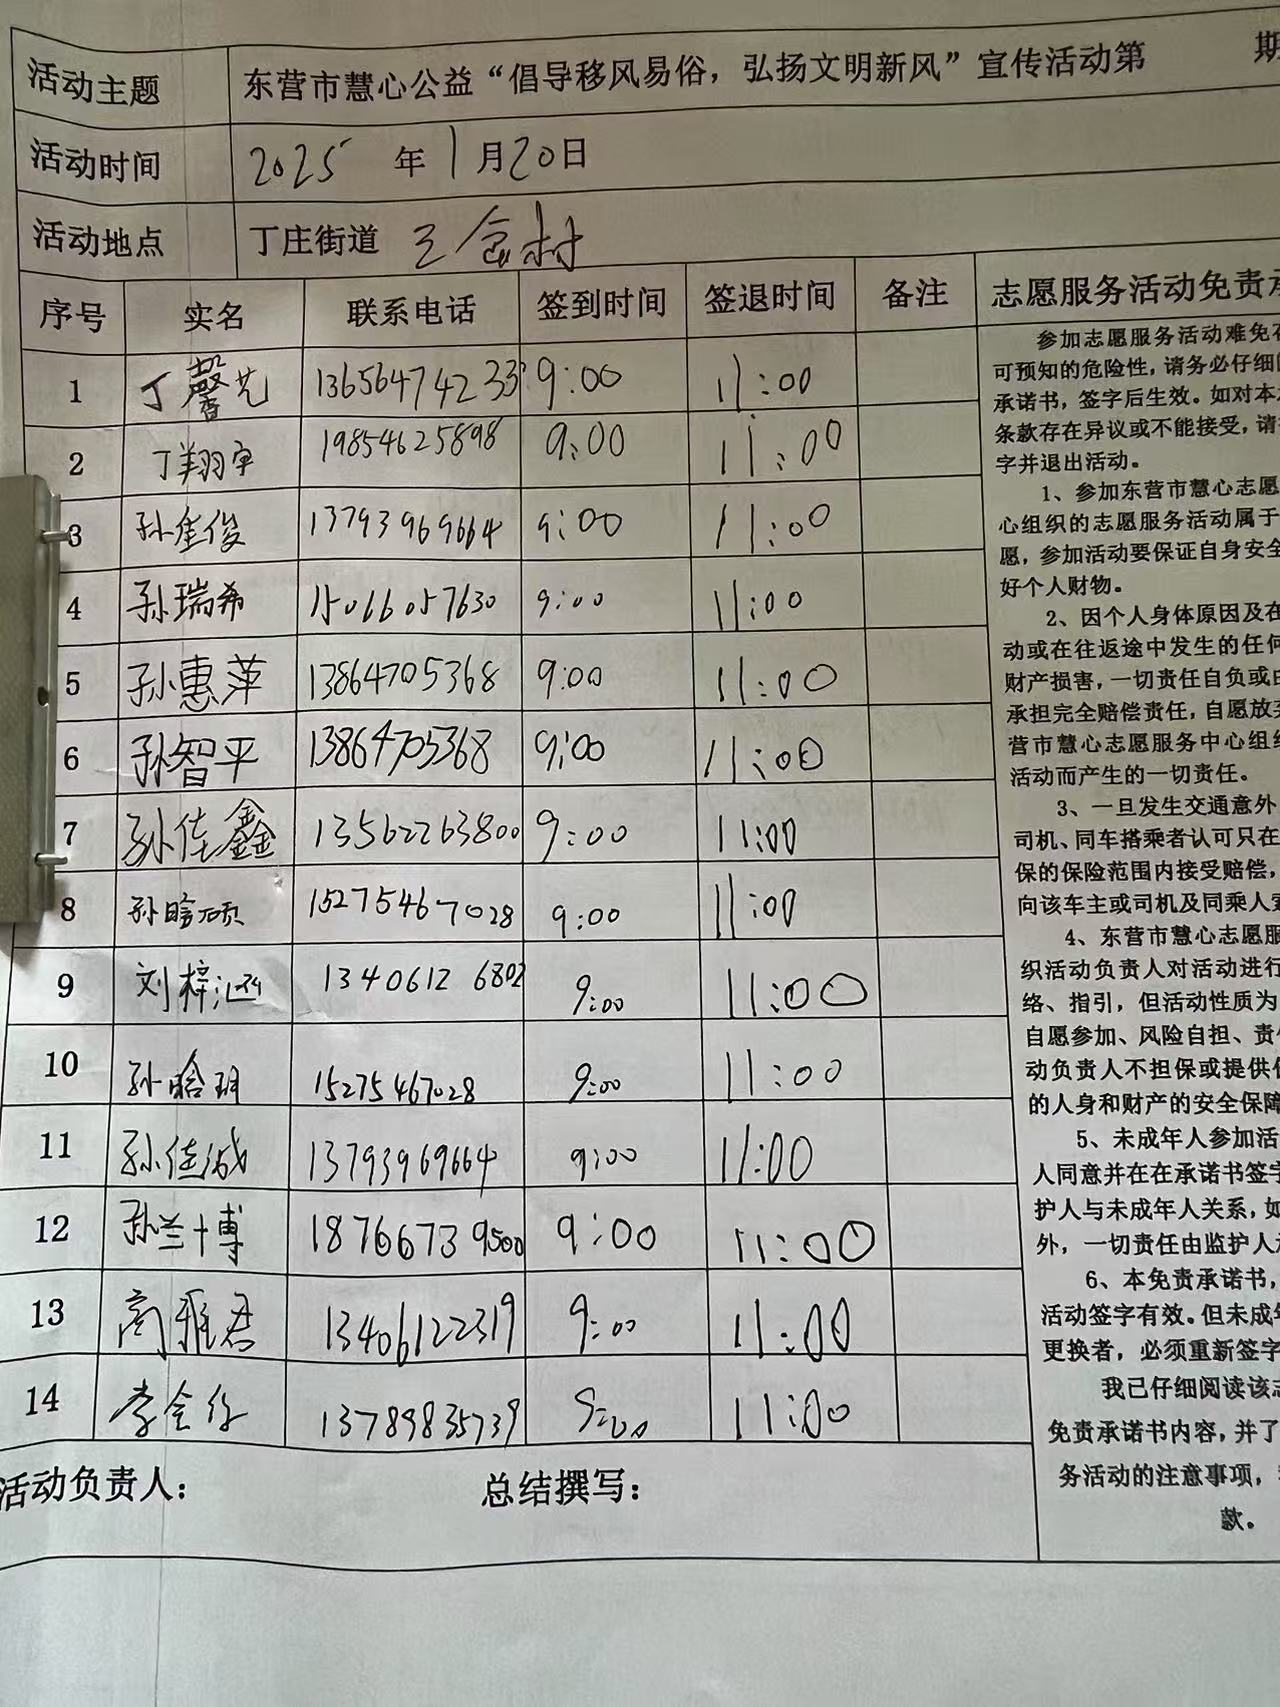 活动主题 东营市慧心公益“倡导移风易俗，弘扬文明新风”宣传活动第 期
活动时间 2025 年 1 月 20 日
活动地点 丁庄街道 王 村
序号 实名 联系电话 签到时间 签退时间 备注
1 丁馨艺 13656474233 9:00 11:00
2 丁翔宇 19854625898 9:00 11:00
3 孙奎俊 13793969664 9:00 11:00
4 孙瑞希 15066057630 9:00 11:00
5 孙惠萍 13864705368 9:00 11:00
6 孙智平 13864705368 9:00 11:00
7 孙佳鑫 13562263800 9:00 11:00
8 孙晗硕 15275467028 9:00 11:00
9 刘梓涵 13406126802 9:00 11:00
10 孙晗玥 15275467028 9:00 11:00
11 孙佳诚 13793969664 9:00 11:00
12 孙兰博 18766739500 9:00 11:00
13 商雅君 13406122319 9:00 11:00
14 李 13789835739 9:00 11:00
活动负责人： 总结撰写：
志愿服务活动免责承
参加志愿服务活动难免存
可预知的危险性，请务必仔细
承诺书，签字后生效。如对本
条款存在异议或不能接受，请
字并退出活动。
1、参加东营市慧心志愿
心组织的志愿服务活动属于
愿，参加活动要保证自身安全
好个人财物。
2、因个人身体原因及在
动或在往返途中发生的任何
财产损害，一切责任自负或由
承担完全赔偿责任，自愿放弃
营市慧心志愿服务中心组织
活动而产生的一切责任。
3、一旦发生交通意外
司机、同车搭乘者认可只在
保的保险范围内接受赔偿，
向该车主或司机及同乘人索
4、东营市慧心志愿服
织活动负责人对活动进行
络、指引，但活动性质为
自愿参加、风险自担、责任
动负责人不担保或提供任
的人身和财产的安全保障
5、未成年人参加活
人同意并在在承诺书签字
护人与未成年人关系，如
外，一切责任由监护人承
6、本免责承诺书，
活动签字有效。但未成年
更换者，必须重新签字
我已仔细阅读该志
免责承诺书内容，并了
务活动的注意事项，
款。